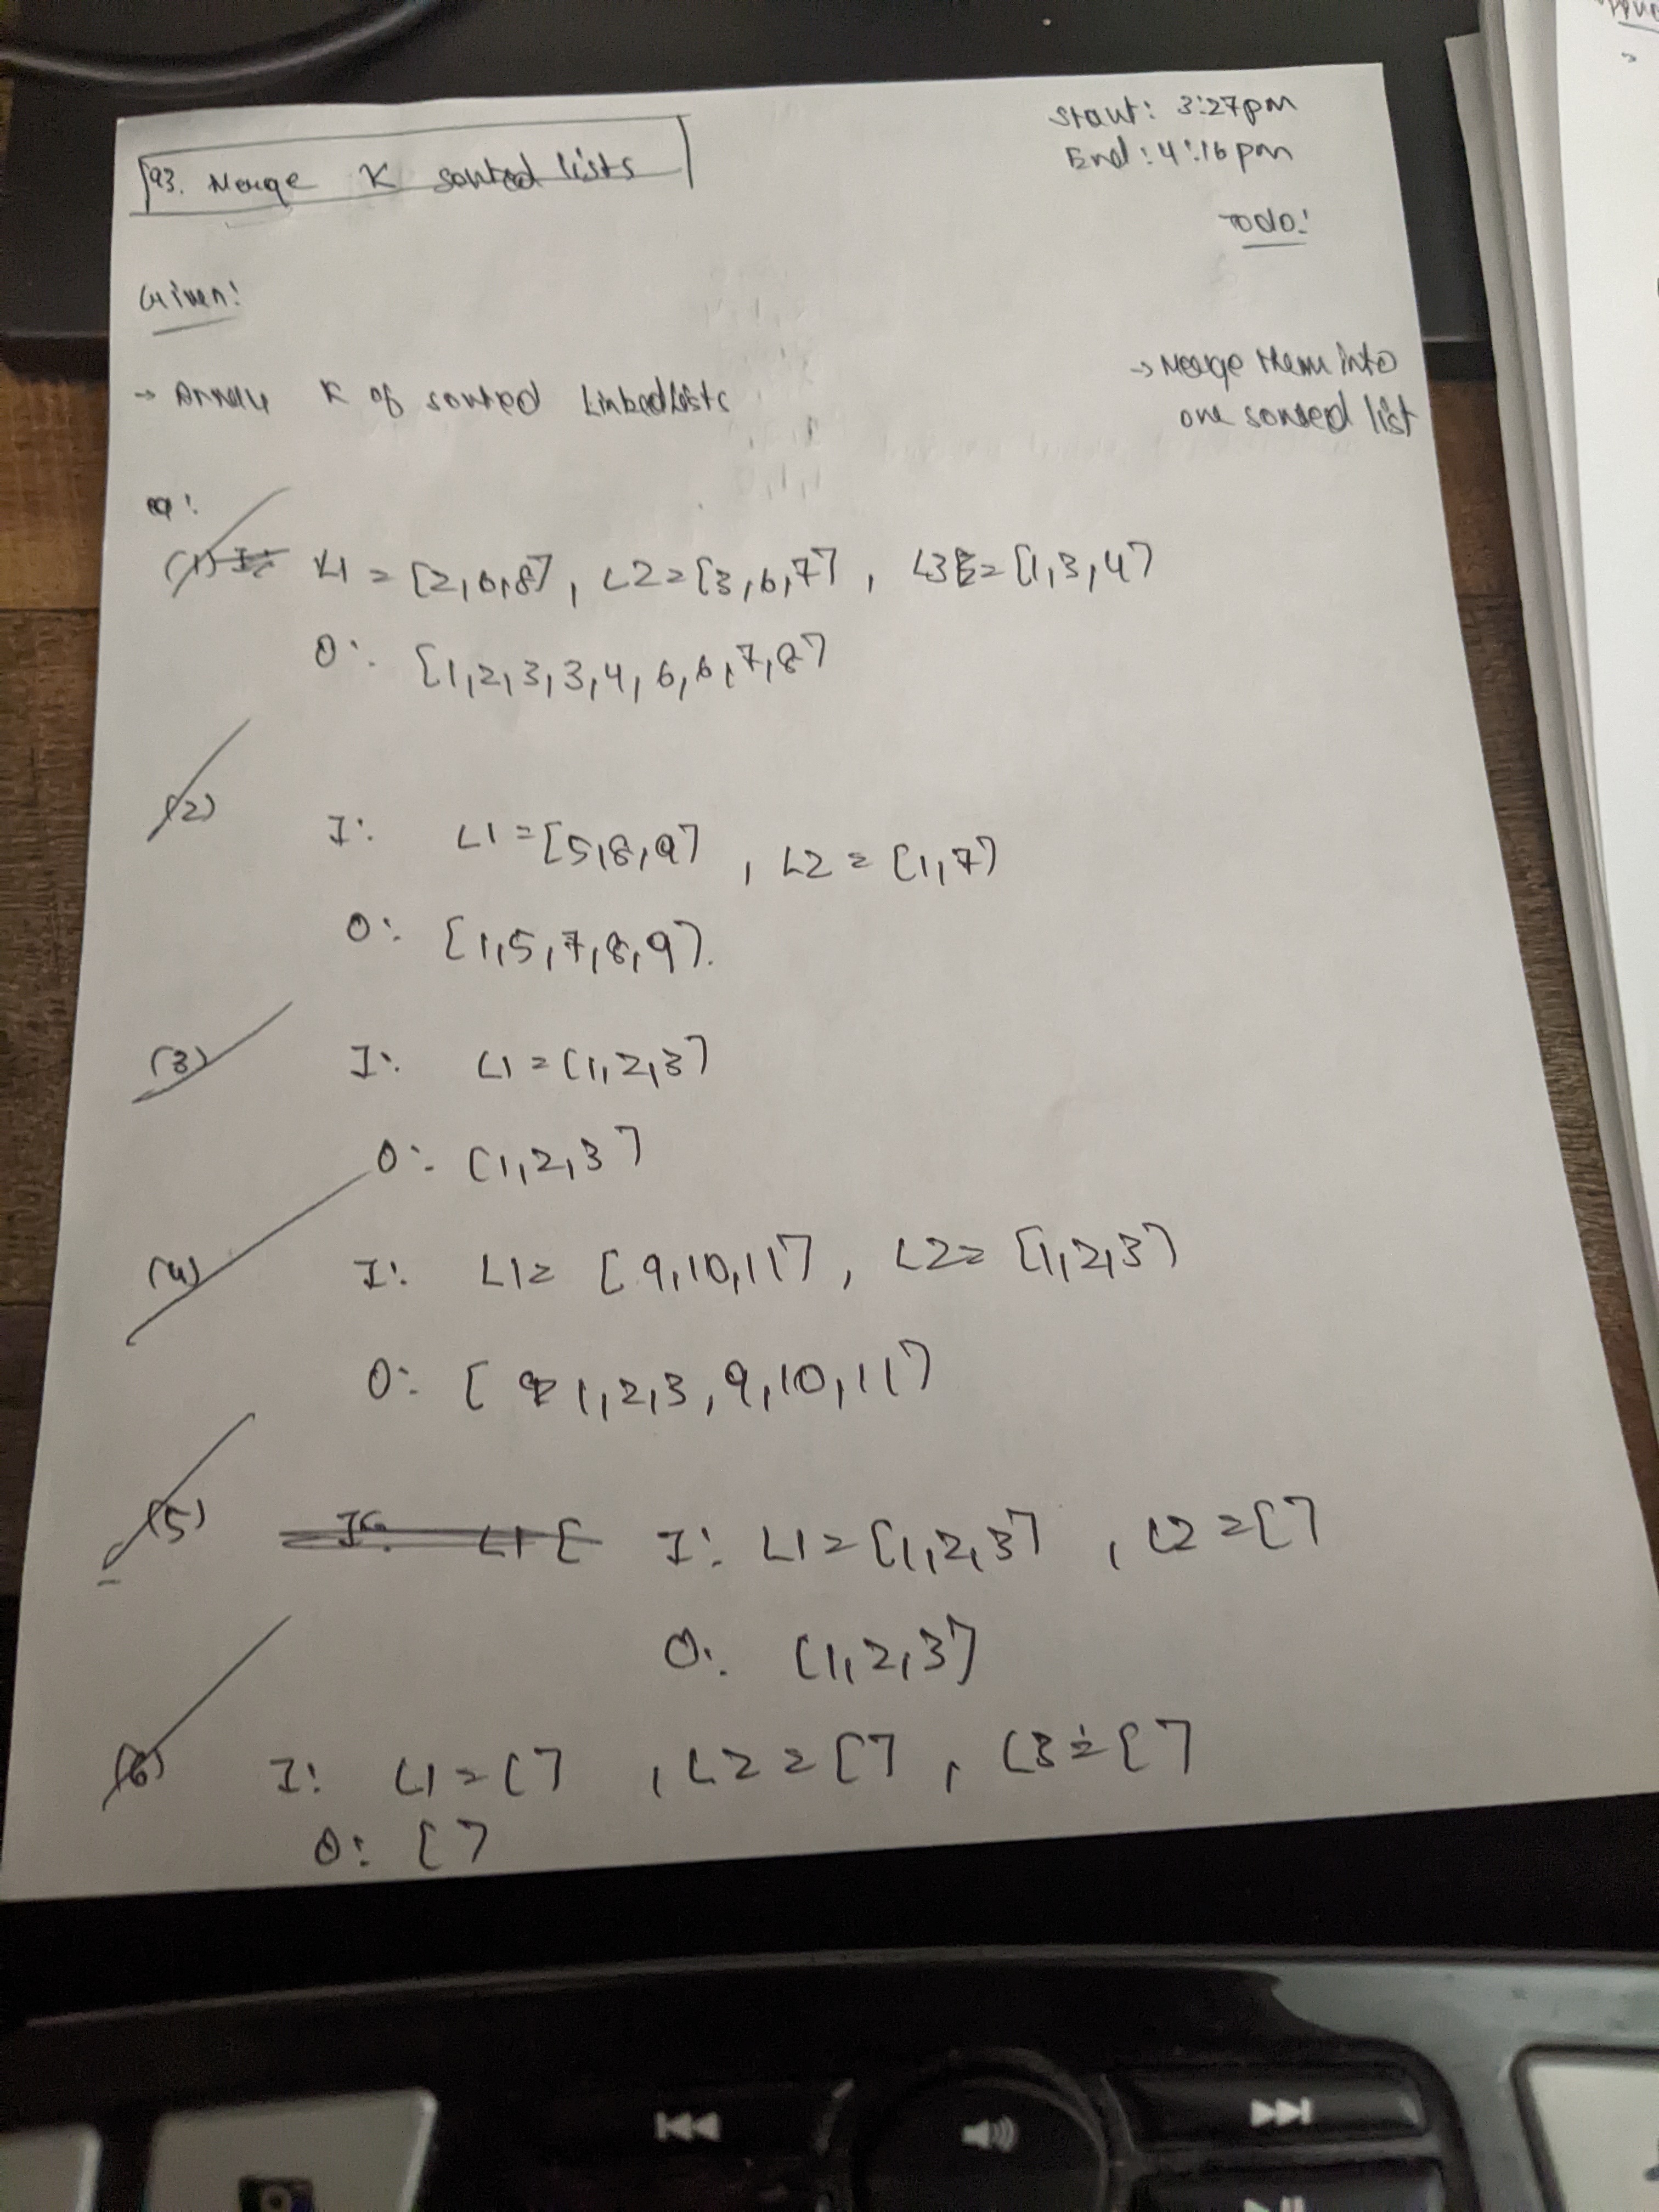 93. Merge K sorted lists
Start: 3:27pm
End: 4:16pm
Todo:
Given:
→ Array K of sorted Linkedlists
→ Merge them into
one sorted list
eg:
(1) L1 = [2,6,8], L2=[3,6,7], L3 = [1,3,4]
O: [1,2,3,3,4,6,6,7,8]
(2) I: L1=[5,8,9], L2 = [1,7]
O: [1,5,7,8,9].
(3) I: L1=[1,2,3]
O: [1,2,3]
(4) I: L1= [9,10,11], L2= [1,2,3]
O: [1,2,3,9,10,11]
(5) I: L1 [ I: L1=[1,2,3], L2=[]
O: [1,2,3]
(6) I: L1=[], L2=[], L3=[]
O: []